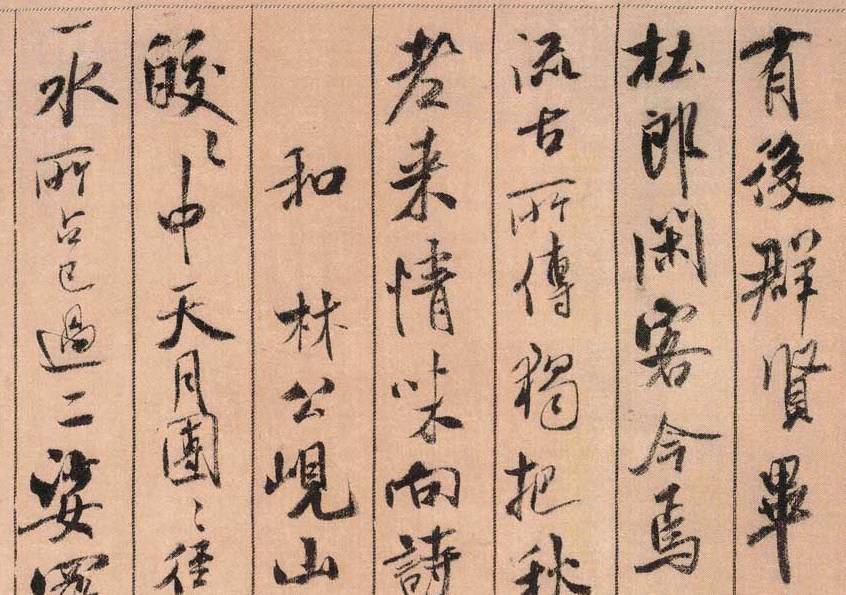 有後群賢畢
杜郎閑客今焉
流古所傳獨把秋
老来情味向詩
和林公峴山
皎々中天月團々徑
一水所占已過二娑羅